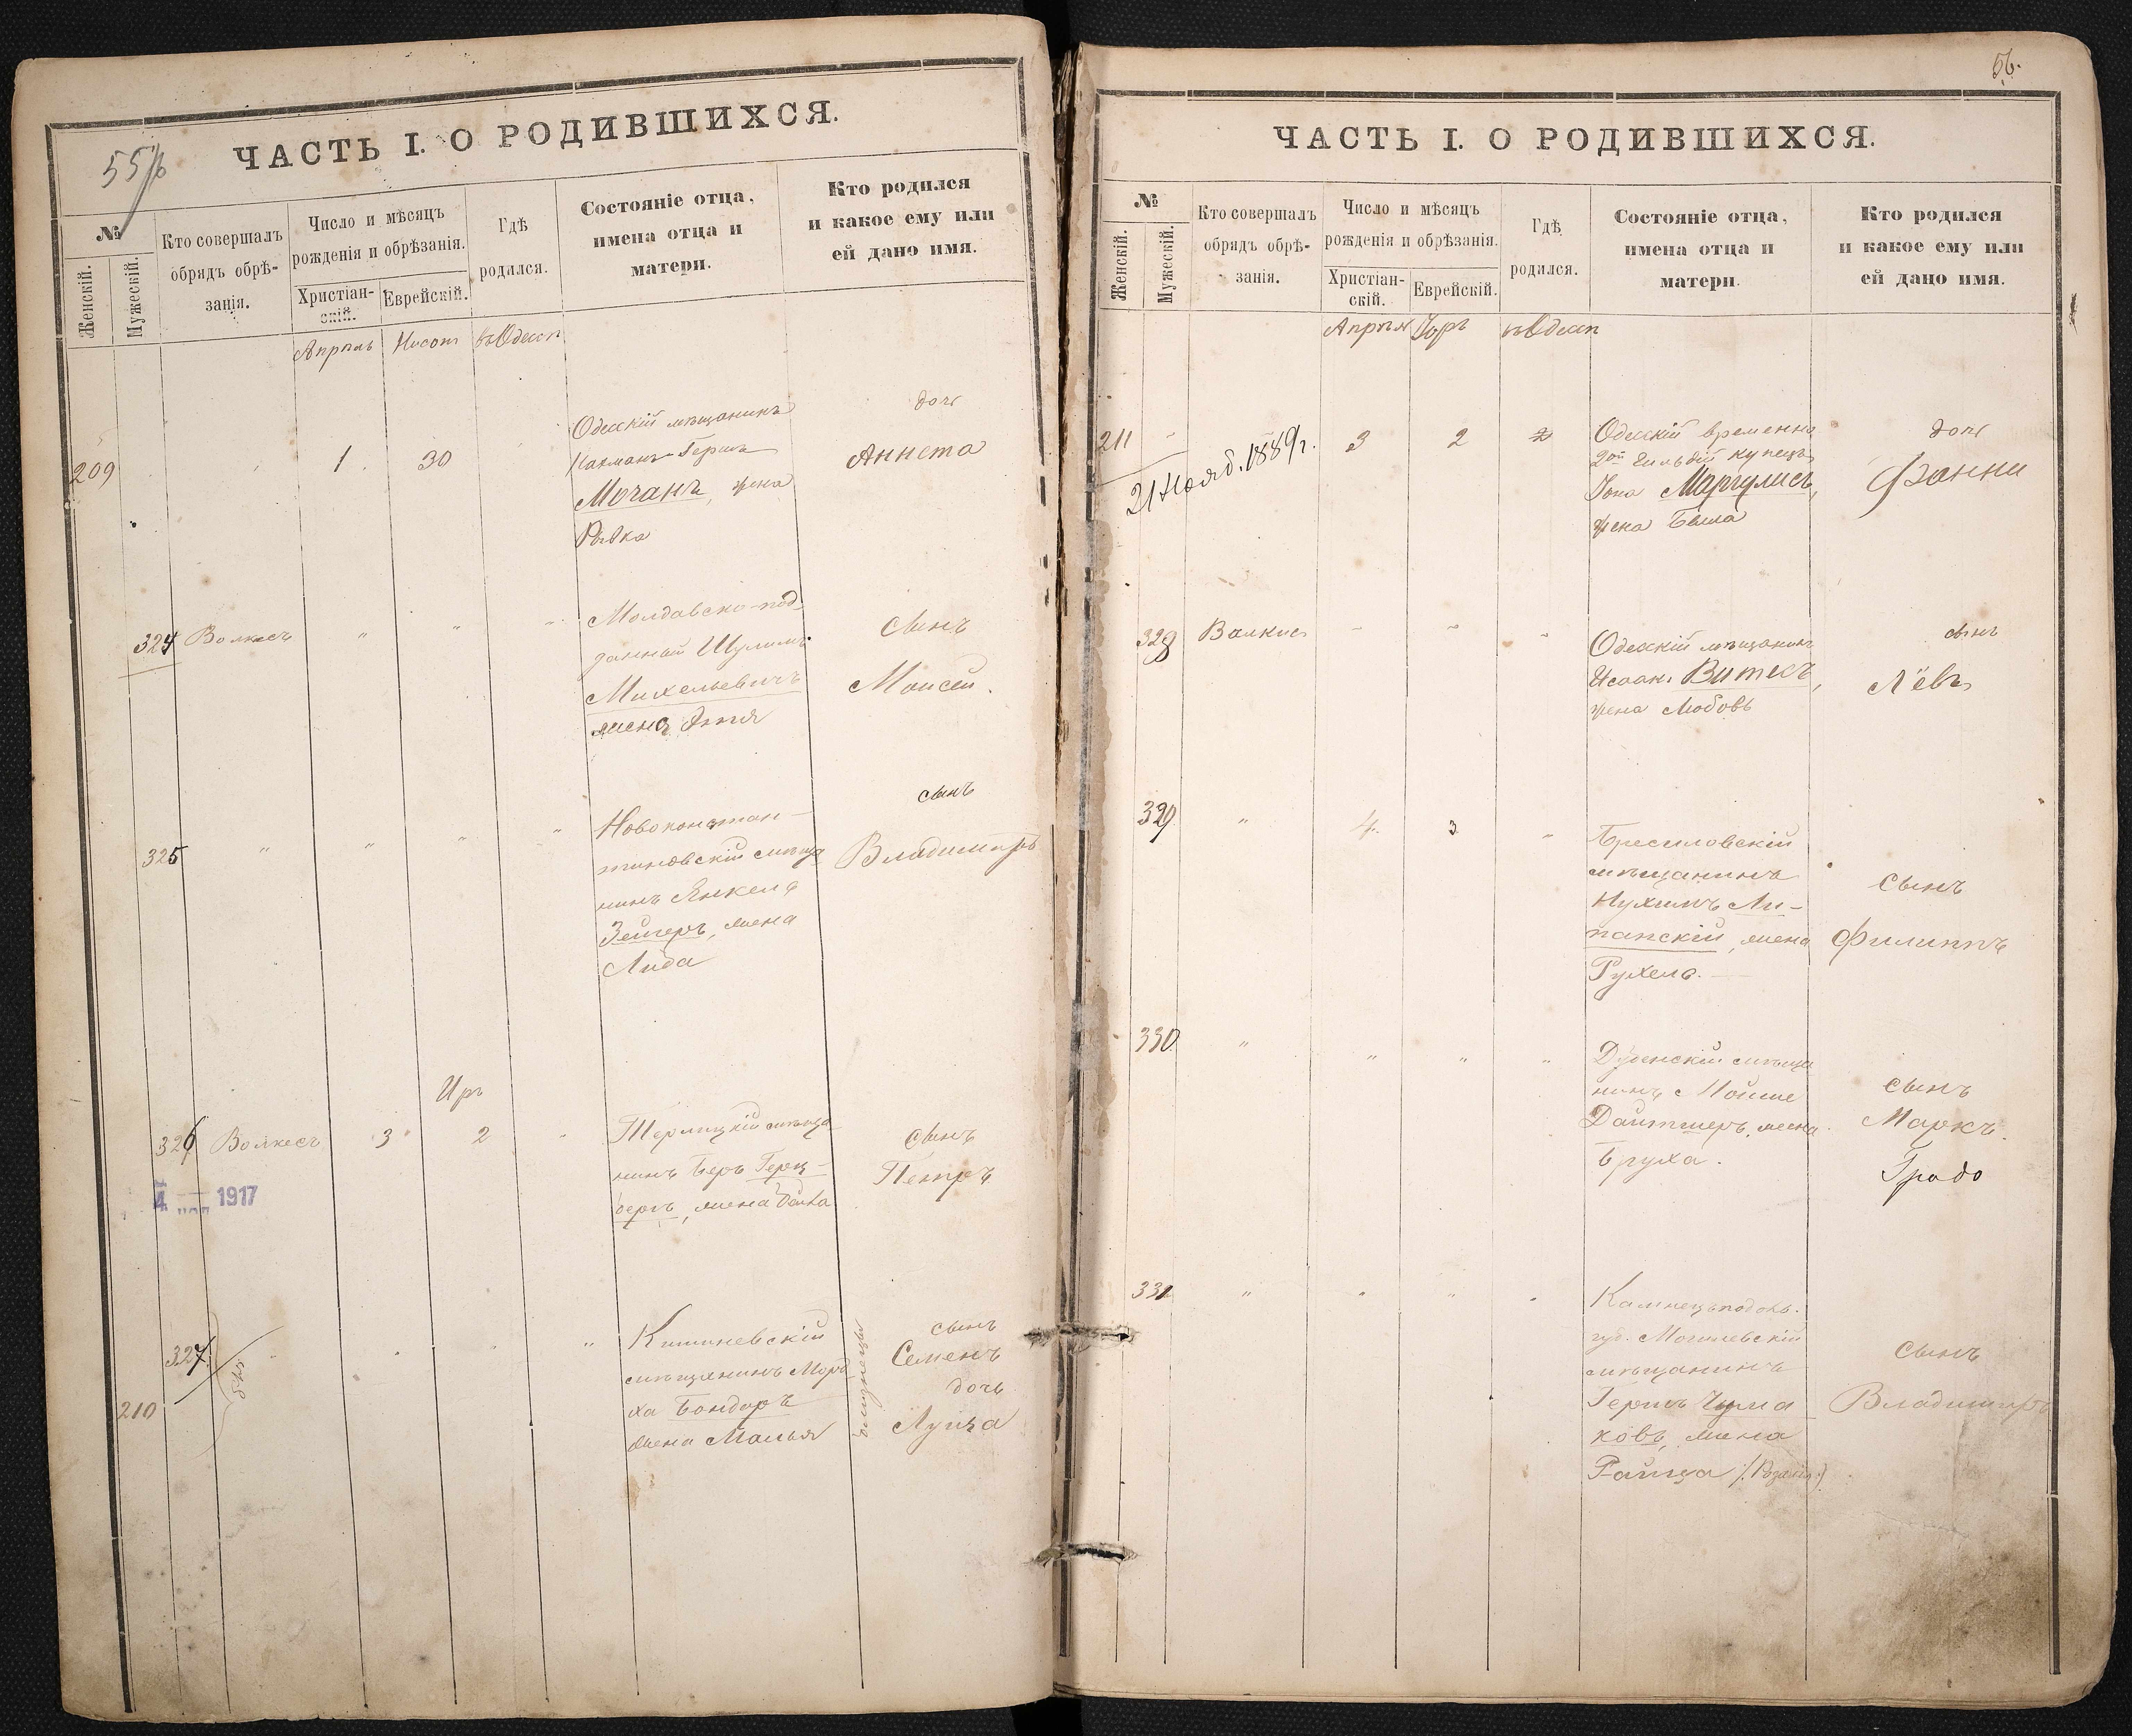 55/б
ЧАСТЬ I. О РОДИВШИХСЯ.
№
Женскій.
Мужескій.
Кто совершалъ
обрядъ обрѣ-
занія.
Число и мѣсяцъ
рожденія и обрѣзанія.
Христіан-
скій.
Еврейскій.
Гдѣ
родился.
Состояніе отца,
имена отца и
матери.
Кто родился
и какое ему или
ей дано имя.
Апрѣль Нисонъ въ Одессѣ
209 1. 30
Одесскій мѣщанинъ
Калманъ-Гершъ
Мочанъ, жена
Ривка
дочь
Аннета
324 Волкесъ " " "
Молдавско-под-
данный Шулимъ
Михельевичъ
жена Этя
сынъ
Моисей.
325 " " " "
Новоконстан-
тиновскій мѣща
нинъ Янкель
Зейгеръ, жена
Лида
сынъ
Владимиръ
Иръ
326 Волкесъ 3 2 "
мѣща
нинъ Беръ Герц-
бергъ, жена
сынъ
Петръ
4 1917
327 " " " "
210
Кишиневскій
мѣщанинъ Морд
ха Бондаръ
жена Малья
близнецы
сынъ
Семенъ
дочь
Луиза
56.
ЧАСТЬ I. О РОДИВШИХСЯ.
№
Женскій.
Мужескій.
Кто совершалъ
обрядъ обрѣ-
занія.
Число и мѣсяцъ
рожденія и обрѣзанія.
Христіан-
скій.
Еврейскій.
Гдѣ
родился.
Состояніе отца,
имена отца и
матери.
Кто родился
и какое ему или
ей дано имя.
Апрѣль Іоръ въ Одессѣ
211 " 3 2
21 Нояб. 1889 г.
Одесскій временно
2ой гильдіи купецъ
Іона Маргулисъ,
жена Бейла
дочь
Фанни
328 Волкисъ " " "
Одесскій мѣщанинъ
Исаак. Витесъ,
жена Любовь
сынъ
Лёвъ
329 " 4. 3 "
мѣщанинъ
Нухимъ Ли-
папскій, жена
Рухель.
сынъ
Филиппъ
330 " " " "
Дубенскій мѣща
нинъ Мойше
Дайтшеръ, жена
Бруха.
сынъ
Маркъ.
331 " " " "
Каменецъподоль.
губ. Могилевскій
мѣщанинъ
Гершъ Чума
ковъ, жена
Райца (Розалія)
сынъ
Владимиръ